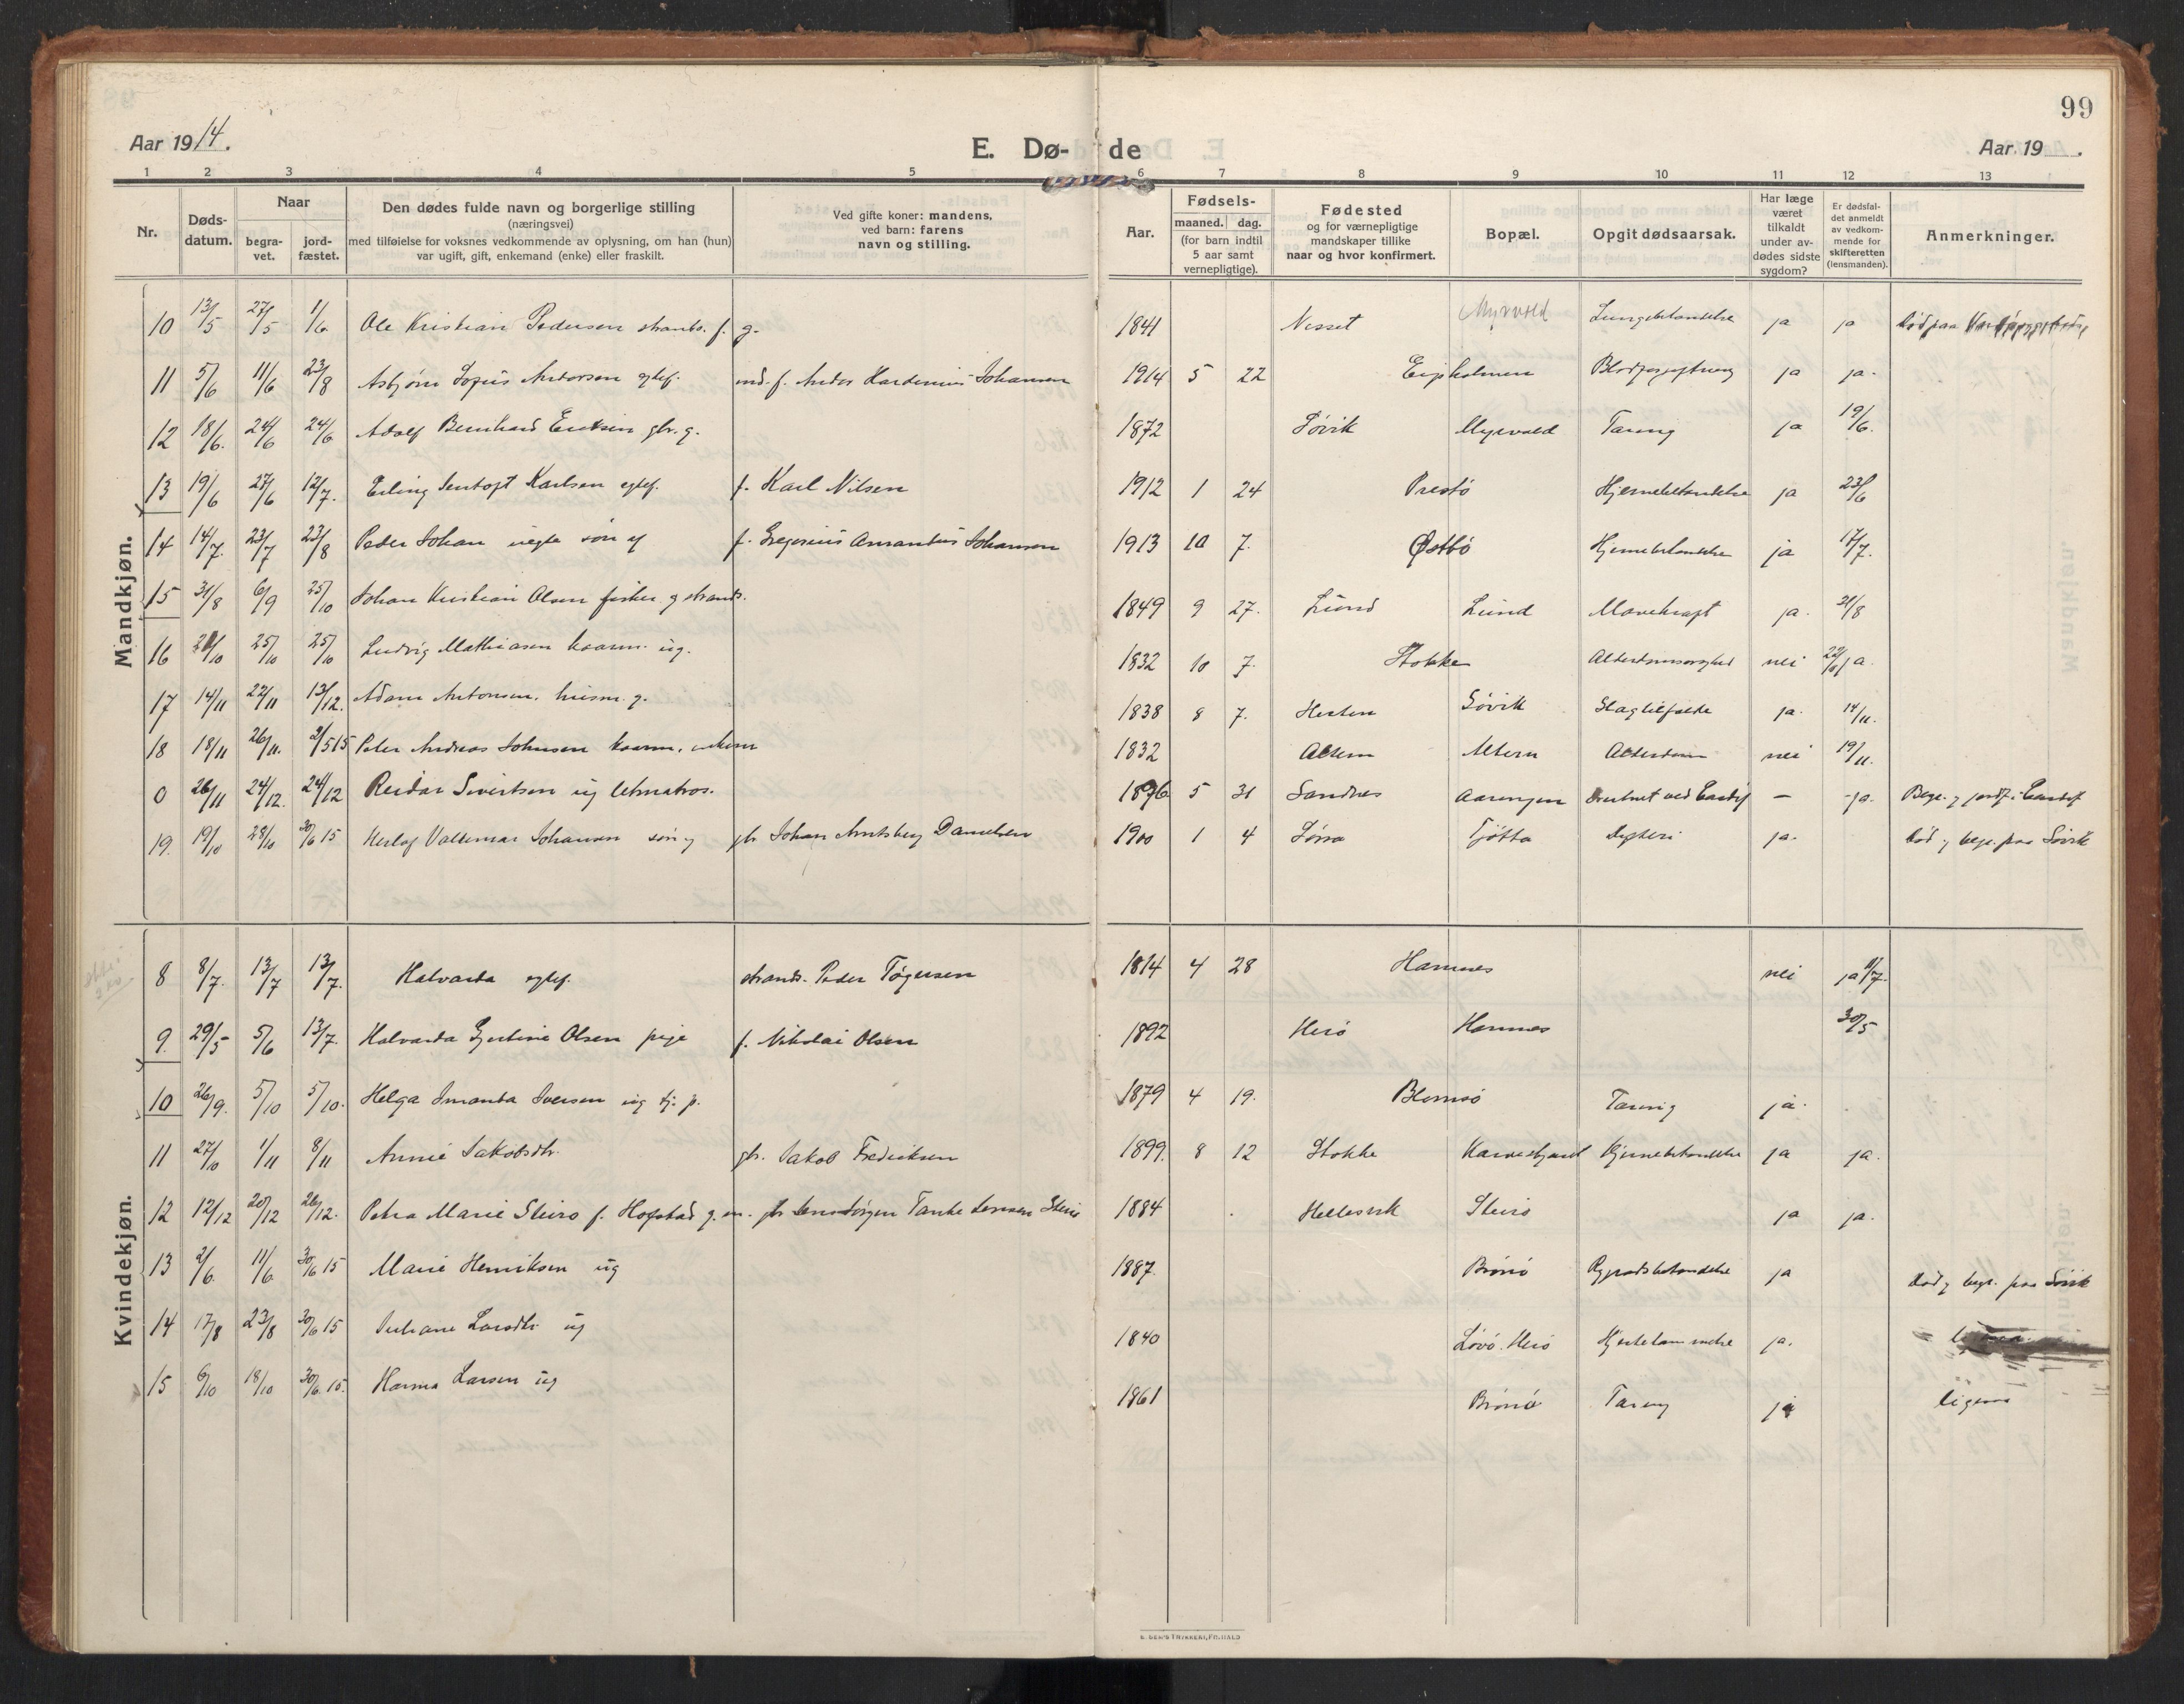 99
Aar 1914.
E. Dø-
de
Aar 19 .
1 2 3 4 5 6 7 8 9 10 11 12 13
Nr.
Døds-
datum.
Naar
begra-
vet.
jord-
fæstet.
Den dødes fulde navn og borgerlige stilling
(næringsvei)
med tilføielse for voksnes vedkommende av oplysning, om han (hun)
var ugift, gift, enkemand (enke) eller fraskilt.
Ved gifte koner: mandens,
ved barn: farens
navn og stilling.
Aar.
Fødsels-
maaned. dag.
(for barn indtil
5 aar samt
vernepligtige).
Fødested
og for værnepligtige
mandskaper tillike
naar og hvor konfirmert.
Bopæl.
Opgit dødsaarsak.
Har læge
været
tilkaldt
under av-
dødes sidste
sygdom?
Er dødsfal-
det anmeldt
av vedkom-
mende for
skifteretten
(lensmanden).
Anmerkninger.
Mandkjøn.
10 13/5 27/5 1/6 Ole Kristian Pedersen strands. f. g. 1841 Nesset Myrvold Lungebetændelse ja ja Død paa
11 5/6 11/6 23/8 Asbjørn Sofus Andersen egtef. f. Anders Hardenius Johansen 1914 5 22 Blodforgiftning ja ja.
12 18/6. 24/6 24/6 Adolf Bernhard Eriksen gbr. g. 1872 Søvik Myrvold Tæring ja 19/6.
13 19/6 27/6 12/7. Erling Karlsen egtef. f. Karl Nilsen 1912 1 24 Prestø Hjernebetændelse ja 23/6
14 14/7. 23/7 23/8 Peder Johan uegte søn af f. Gregorius Amandus Johansen 1913 10 7. Østbø Hjernebetændelse ja 17/7.
15 31/8 6/9 25/10 Johan Kristian Olsen fisker g strands. 1849 9 27. Lund Lund Mavekræft ja. 31/8
16 21/10 25/10 25/10 Ludvig Mathiasen kaarm. ug. 1832 10 7. Stokke Alderdomssvaghed nei 22/10 ja.
17 14/11 22/11 13/12. Adam Antonsen. husm. g. 1838 8 7. Hesten Søvik Slagtilfælde ja. 14/11.
18 18/11 26/11. 2/5 15 Peter Andreas Johnsen kaarm. enkem 1832 Altern Altern Alderdom nei 19/11.
0 26/11 24/12. 24/12 Reidar Sivertsen ug letmatros. 1896 5 31 Sandnes Druknet ved Cardif — ja. Begr. g jordf. i Cardif
19. 19/10 28/10 30/6 15 Herlof Valdemar Johansen søn g gbr Johan Arntsberg Danielsen 1900 1 4 Tjøtta ja. Død g begr. paa Søvik
Kvindekjøn.
8 8/7. 13/7 13/7. Halvarda egtef. strands. Peder Tøgersen 1814 4 28 Hamnes nei ja 11/7.
9. 29/5 5/6 13/7. Halvarda Gjertine Olsen pige f. Nikolai Olsen 1892 Herø Hamnes 30/5
10 26/9. 5/10 5/10. Helga Amanda Iversen ug tj. p. 1879 4 19. Blomsø Tæring ja.
11 27/10 1/11 8/11 Annie Jakobsdtr. gbr. Jakob Fredriksen 1899. 8 12 Stokke Hjernebetændelse ja ja.
12 12/12 20/12 26/12. Petra Marie Steiro f. Hofstad g. m. gbr Jens Jørgen Tanke Jensen Steiro 1884 Hellesvik Steiro ja ja.
13 2/6. 11/6. 30/6 15 Marie Henriksen ug 1887. Brønø Rygradsbetændelse ja Død g begr. paa Søvik
14 17/8 23/8 30/6 15 Juliane Larsdtr. ug 1840 Løvø. Herø ja.
15 6/10 18/10 30/6 15. Hanna Larsen ug 1861 Brønø Tæring ja ligesaa